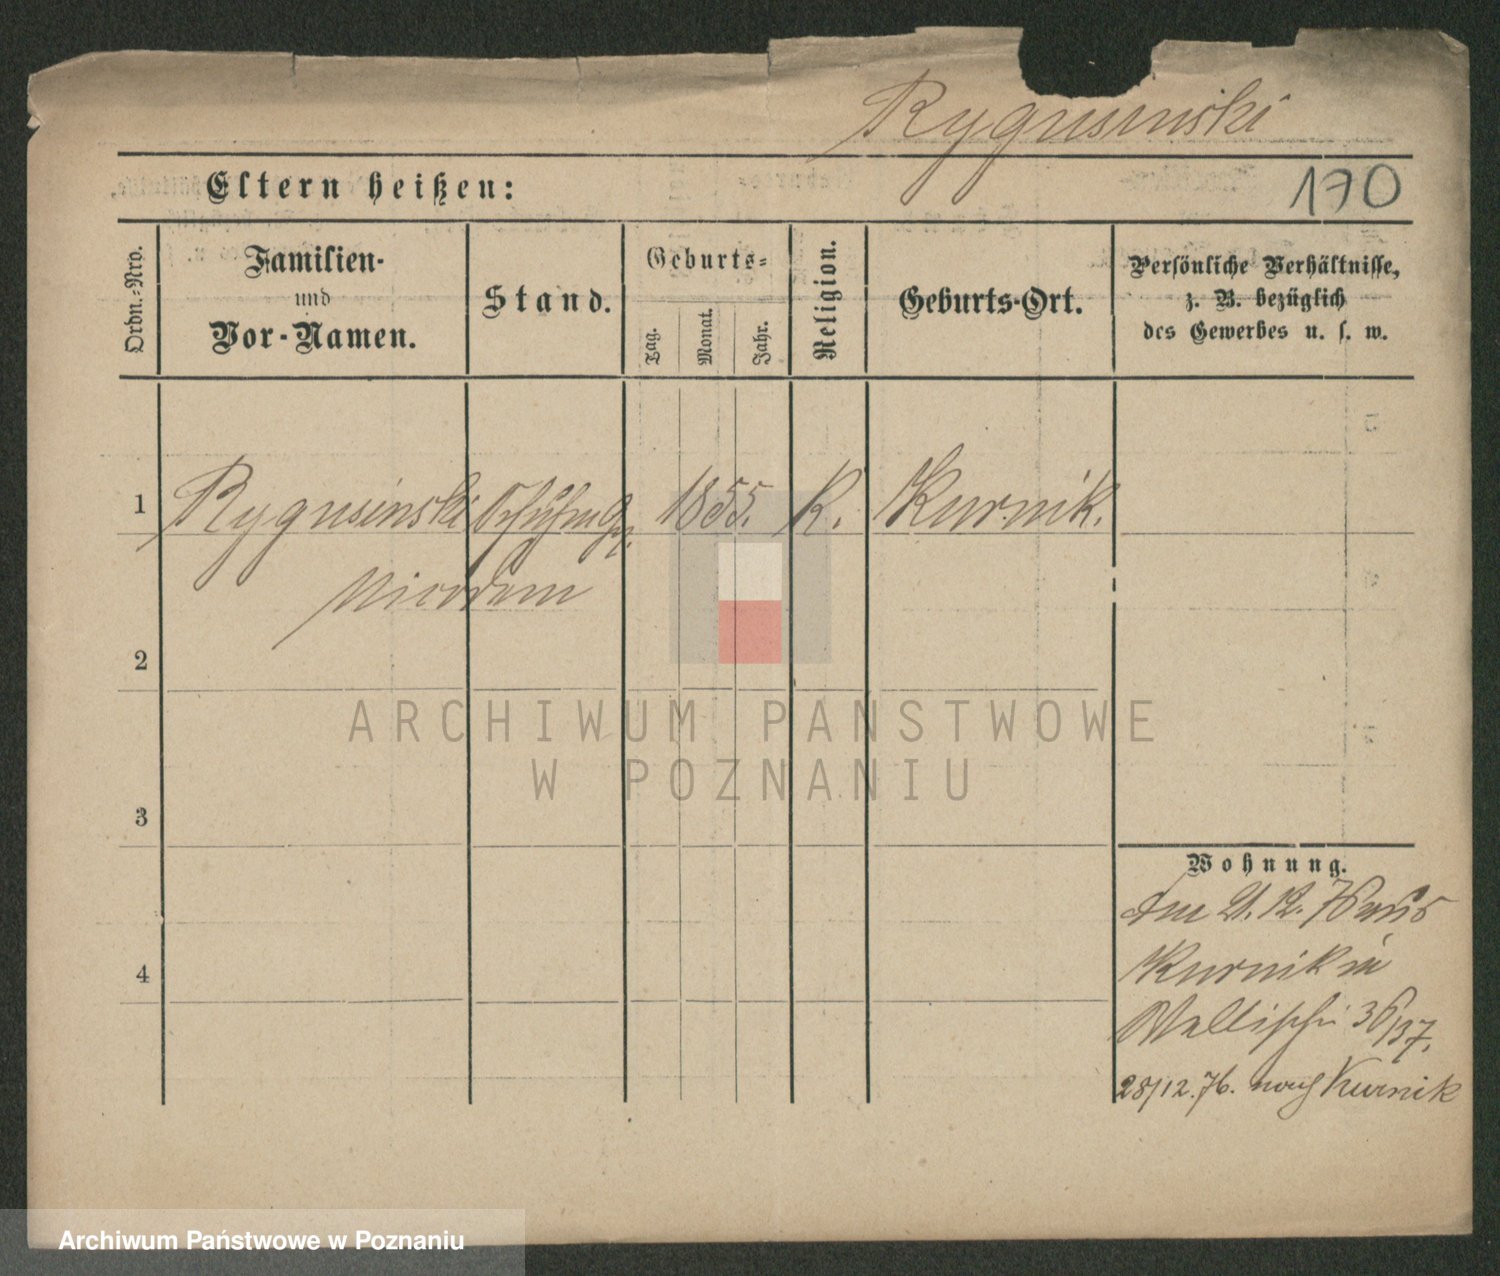 Rygusinski
Eltern heißen:
170
Ordn.-Nro.
Familien-
und
Vor-Namen.
Stand.
Geburts-
Tag.
Monat.
Jahr.
Religion.
Geburts-Ort.
Persönliche Verhältnisse,
z. B. bezüglich
des Gewerbes u. s. w.
1
Rygusinski
1855. K. Kurnik.
Nicodem
2
ARCHIWUM PAŃSTWOWE
W POZNANIU
3
Wohnung.
am 21. 12. 76 aus
4
Kurnik in
Wallischei 36/37.
28/12. 76. nach Kurnik
Archiwum Państwowe w Poznaniu